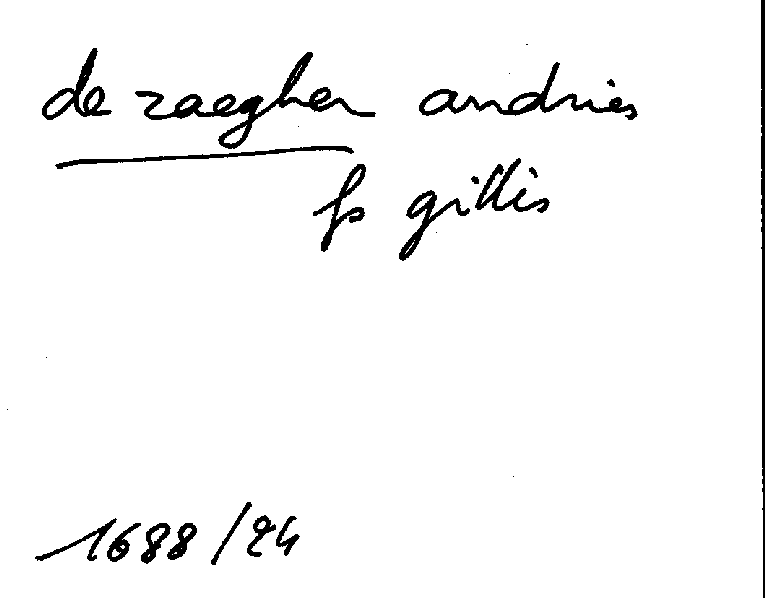 de zaegher andries
fs gillis
1688/24